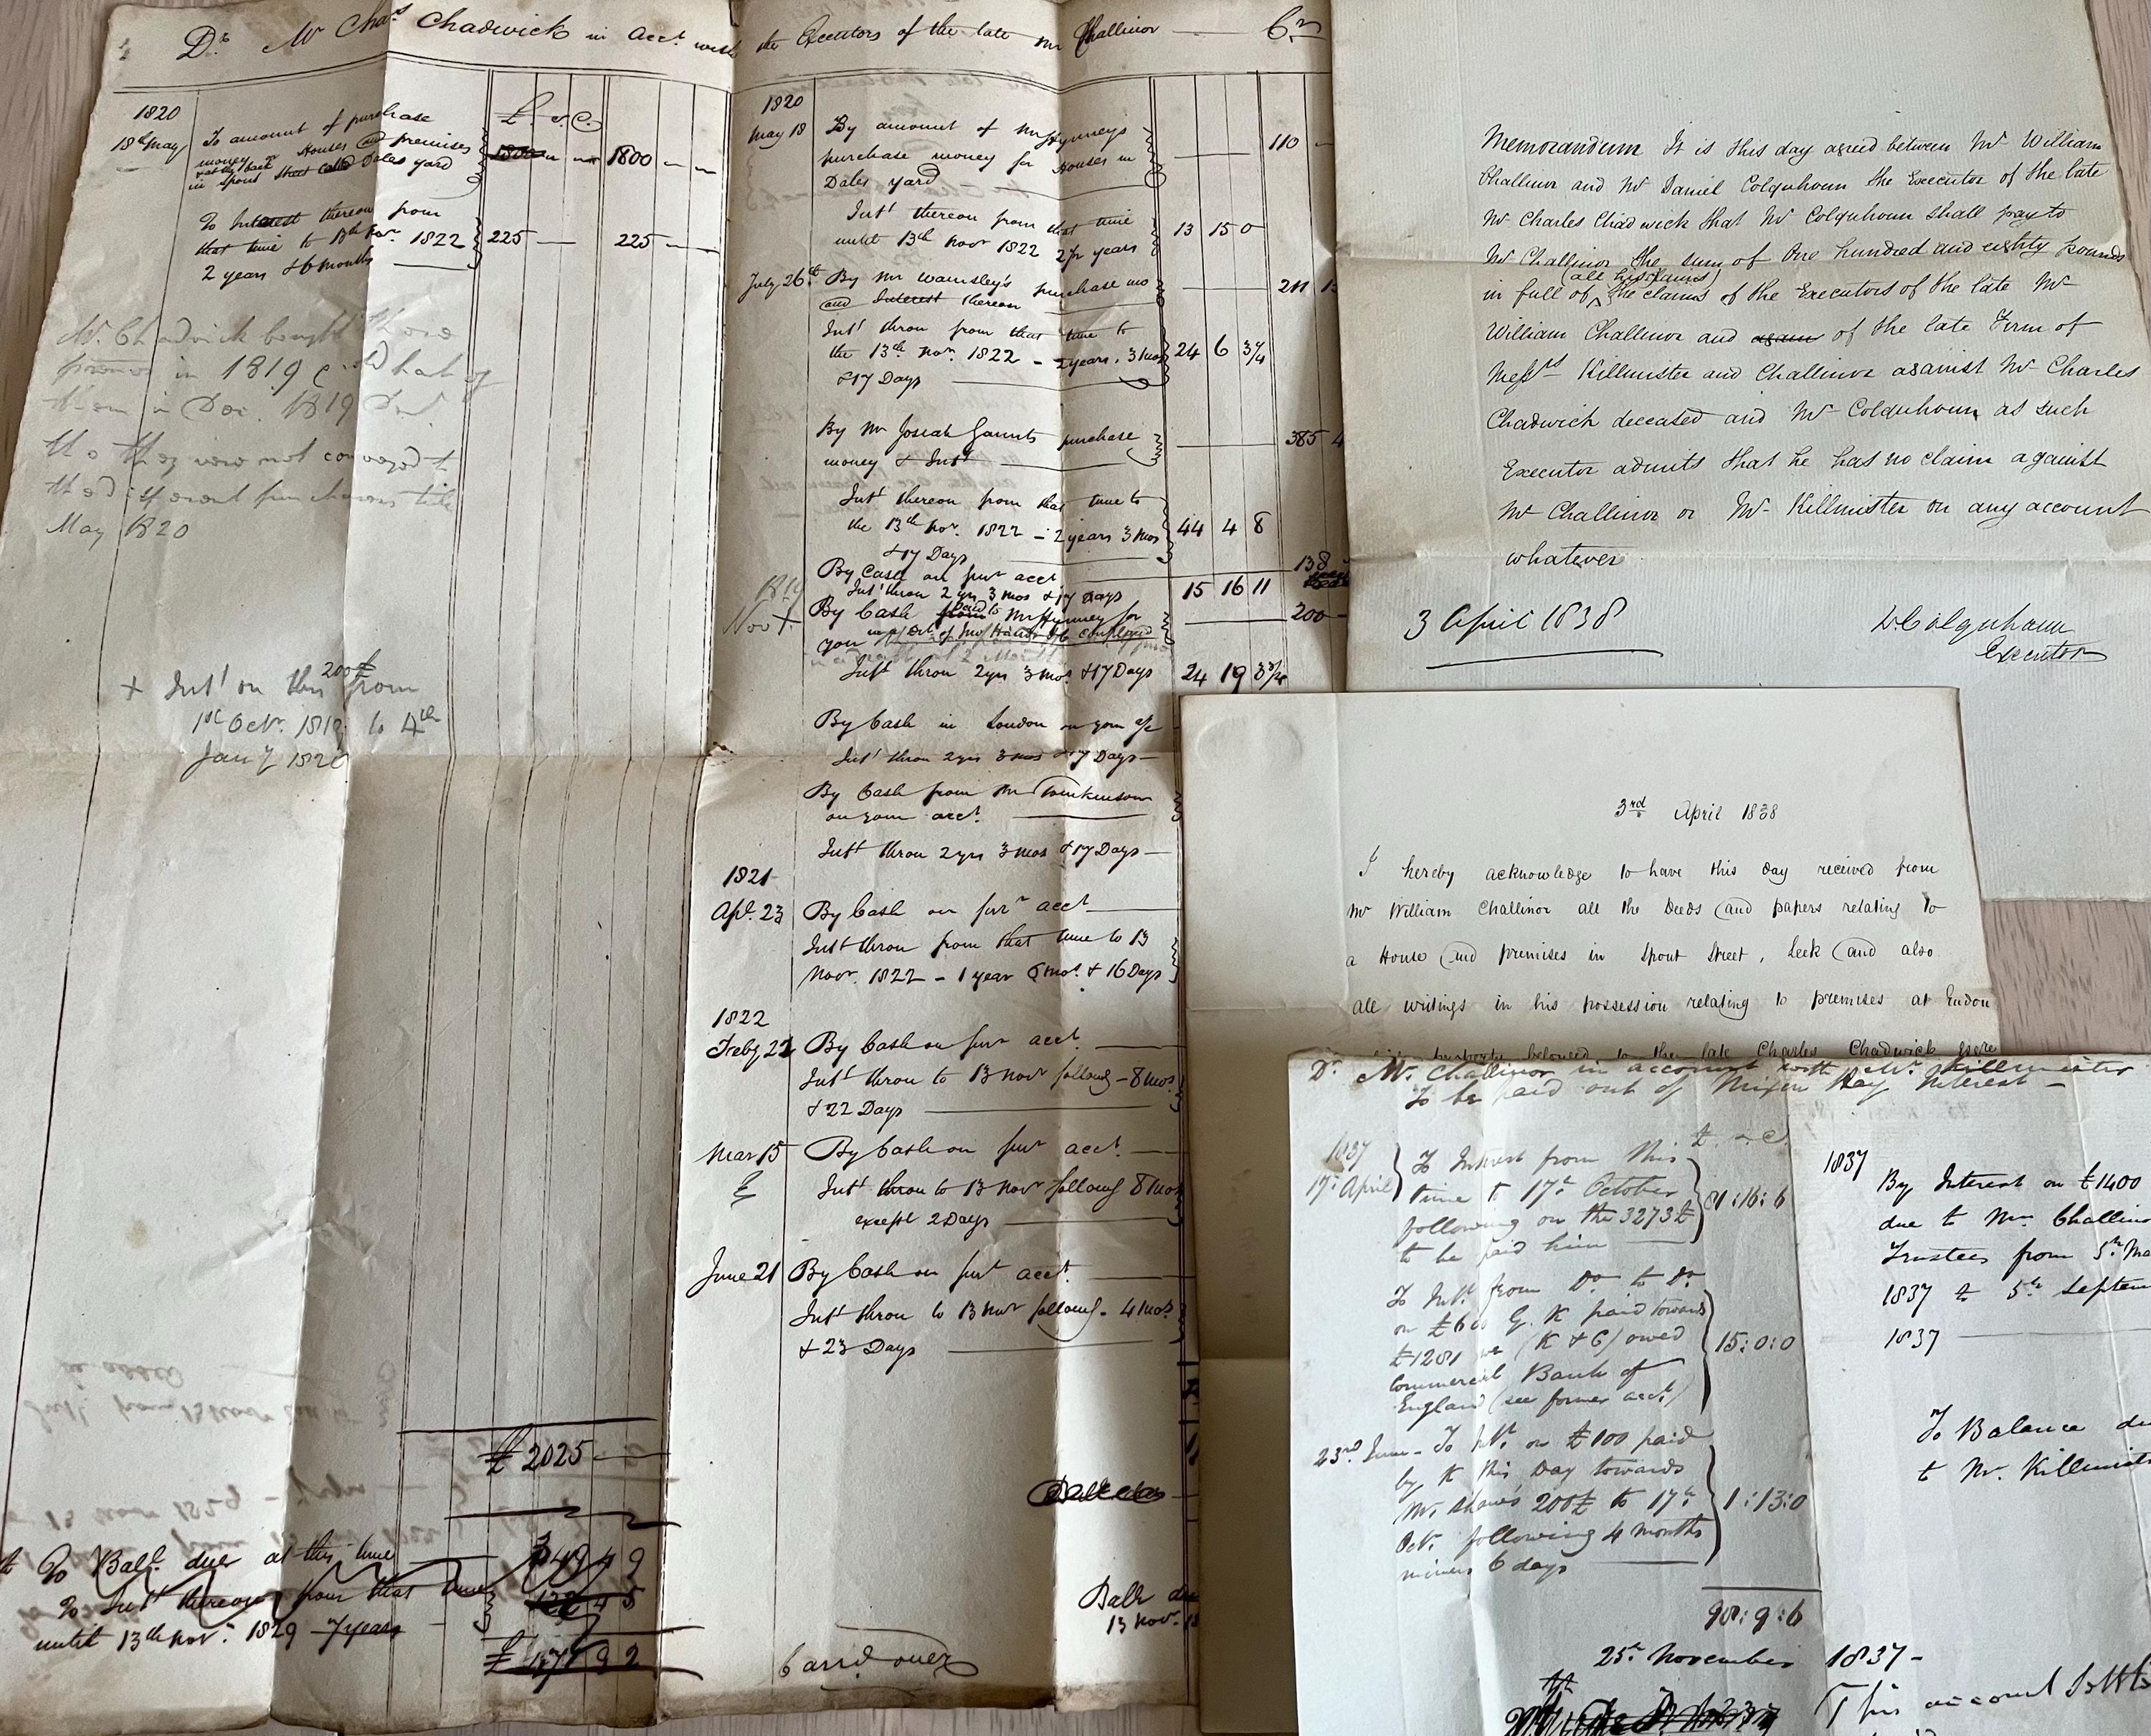 Dr. Mr Chas. Chadwick in Acct. with the Executors of the late Mr Challinor Cr.
1820
18th May
To amount of purchase
money
Houses and premises
in Spout Street Dales yard
£ s d
1800
1800
To Interest thereon from
that time to 13th Nov. 1822
2 years & 6 months
225
225
Mr. Chadwick bought these
in 1819 half of
them in Dec. 1819
tho they were not conveyed to
the different purchasers till
May 1820
+ Int. on this 200£ from
1st Octr. 1819 to 4th
Jany 1820
£ 2025
To Balce. due at this time
349 4 9
To Intt thereon from that time
until 13th Nov. 1829 7 years
£ 471 9 2
1820
May 18
By amount of Mr Hynneys
purchase money for Houses in
Dales yard
110
Intt thereon from that time
until 13th Novr 1822 2½ years
13 15 0
July 26th
By Mr Wamsley's purchase mo
and Interest thereon
211 1
Intt thron from that time to
the 13th Novr. 1822 - 2 years, 3 mos
& 17 Days
24 6 3¼
By Mr Josiah Gaunts purchase
money & Intt
385 4
Intt thereon from that time to
the 13th Novr. 1822 - 2 years 3 mos
& 17 Days
44 4 8
By Cash on furr acct
138
Intt thron 2 yrs 3 mos & 17 Days
15 16 11
1819
Nov +
By Cash paid to Mr Hynney for
you
200
Intt thron 2 yrs 3 mos. & 17 Days
24 19 3¾
By Cash in London on your a/c
Intt thron 2 yrs 3 mos & 17 Days
By Cash from Mr Tomkinson
on your acct.
Intt thron 2 yrs 3 mos & 17 Days
1821
Apl. 23
By Cash on furr acct
Intt thron from that time to 13
Novr. 1822 - 1 year 6 mos. & 16 Days
1822
Feby 22
By Cash on furr acct.
Intt thron to 13 Novr followg - 8 mos
& 22 Days
Mar 15
By Cash on furr acct.
Intt thron to 13 Novr followg 8 mos
except 2 Days
June 21
By Cash on furr acct.
Intt thron to 13 Novr followg - 4 mos
& 23 Days
Balce due
13 Nov. 18
Carrd over
Memorandum It is this day agreed between Mr William
Challinor and Mr Daniel Colquhoun the Executor of the late
Mr Charles Chadwick that Mr Colquhoun shall pay to
Mr Challinor the sum of One hundred and eighty pounds
all his claims
in full of the claims of the Executors of the late Mr
William Challinor and again of the late Firm of
Messrs Killmister and Challinor against Mr Charles
Chadwick deceased and Mr Colquhoun as such
Executor admits that he has no claim against
Mr Challinor or Mr Killmister on any account
whatever
3 April 1838
D. Colquhoun
Executor
3rd April 1838
I hereby acknowledge to have this day received from
Mr William Challinor all the Deeds and papers relating to
a House and premises in Spout Street, Leek and also
all writings in his possession relating to premises at Endon
property belonged to the late Charles Chadwick
Dr. Mr. Challinor in account with Mr. Killmister
To be paid out of Mixen Hay Interest -
£ s d.
1837
17th April
To Interest from this
time to 17th October
following on the 3273£
to be paid him
81:16:6
To Intt. from Do. to Do.
on £600 G. K paid towards
£1281 we (K & C) owed
Commercial Bank of
England (see former acct.)
15:0:0
23rd June - To Intt. on £100 paid
by K this Day towards
Mr. Shaw's 200£ to 17th
Oct. following 4 months
minus 6 days
1:13:0
98:9:6
1837
By Interest on £1400
due to Mr. Challino
Trustees from 5th Ma
1837 to 5th Septem
1837
To Balance du
to Mr. Killmist
25th November 1837 -
This account settle